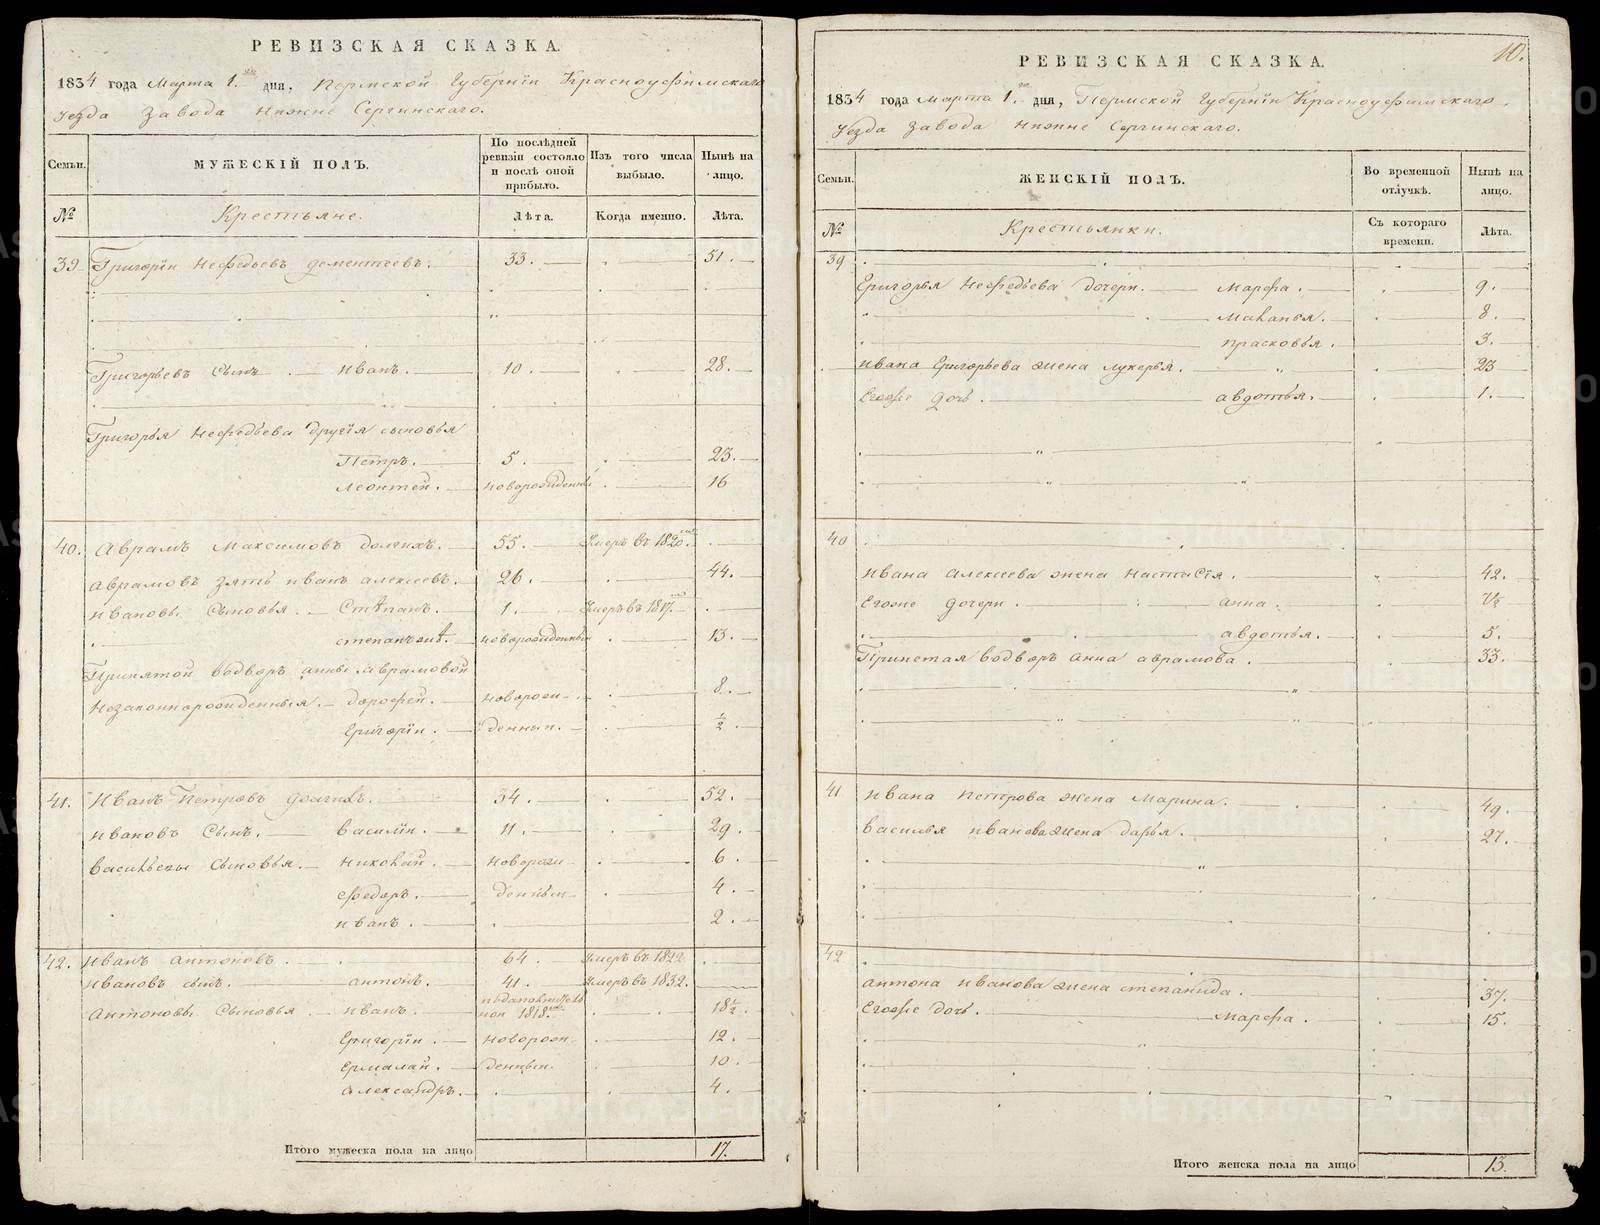 РЕВИЗСКАЯ СКАЗКА.
1834 года Марта 1. дня, Пермской Губернїи Красноуфимскаго
Уезда Завода Нижне Сергинскаго.
Семьи.
МУЖЕСКІЙ ПОЛЪ.
По послѣдней ревизіи состояло и послѣ оной прибыло.
Изъ того числа выбыло.
Нынѣ на лицо.
№
Крестьяне.
Лѣта.
Когда именно.
Лѣта.
39 Григорїи Нефедьевъ Дементеевъ. 33. 51.
Григорьевъ Сынъ Иванъ. 10. 28.
Григорья Нефедьева Другїя сыновья
Петръ. 5. 23.
Леонтей. новорожденный 16
40. Аврамъ Максимовъ Долгихъ. 55. Умеръ въ 1820.
Аврамовъ Зять Иванъ Алексеевъ. 26. 44.
Ивановы Сыновья. Степанъ. 1. Умеръ въ 1817.
новорожденный 13.
Принятой водворъ Анны Аврамовой
Незаконнорожденныя. Дорофей. новорож- 8.
Григорїи. денныи. ½
41. Иванъ Петровъ Долгихъ. 34. 52.
Ивановъ Сынъ. Василїи. 11. 29.
Васильевы Сыновья. Николай. новорож- 6.
Федоръ. денныи 4.
Иванъ. 2.
42. Иванъ Антоновъ. 64. Умеръ въ 1822
Ивановъ сынъ. Антонъ. 41. Умеръ въ 1832.
Антоновы Сыновья Иванъ. 1818. 18½
Григорїи. новорож- 12.
Ермалай. денныи. 10.
Александръ. 4.
Итого мужеска пола на лицо 17.
10.
РЕВИЗСКАЯ СКАЗКА.
1834 года Марта 1. дня, Пермской Губернїи Красноуфимскаго
Уезда Завода Нижне Сергинскаго.
Семьи.
ЖЕНСКІЙ ПОЛЪ.
Во временной отлучкѣ.
Нынѣ на лицо.
№
Крестьянки.
Съ котораго времени.
Лѣта.
39
Григорья Нефедьева Дочери. Марфа. 9.
Маланья. 8.
Прасковья. 3.
Ивана Григорьева жена Лукерья. 23
Егоже дочь. Авдотья. 1.
40
Ивана Алексеева жена Настасїя. 42.
Егоже Дочери. Анна. 7½
Авдотья. 5.
Принетая водворъ Анна Аврамова. 33.
41 Ивана Петрова жена Марина. 49.
Василья Иванова жена Дарья. 27.
42
Антона Иванова жена Степанида. 37.
Егоже Дочь. Марфа. 15.
Итого женска пола на лицо 13.
METRIKI.GASO-URAL.RU